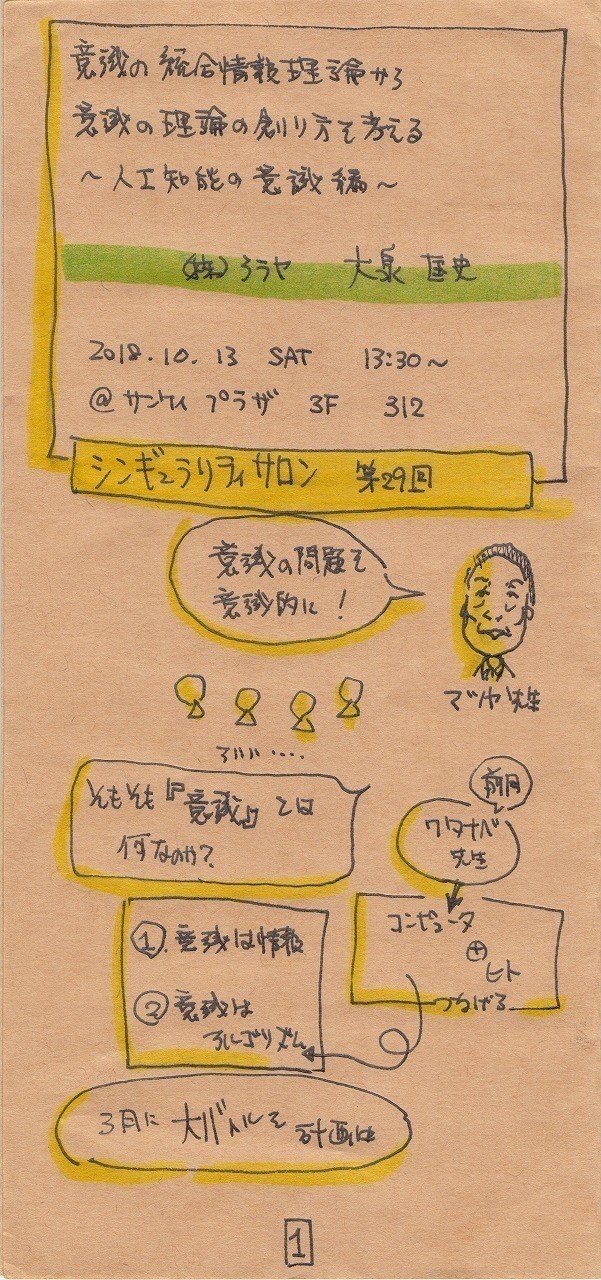 意識の統合情報理論から
意識の理論の創り方を考える
～人工知能の意識編～
(株)アラヤ 大泉 匡史
2018.10.13 SAT 13:30～
@サンケイプラザ 3F 312
シンギュラリティサロン 第29回
意識の問題を
意識的に!
マツダ先生
そもそも『意識』とは
何なのか?
前回
ワタナベ
先生
コンピュータ
⊕
ヒト
つなげる
①.意識は情報
②意識は
アルゴリズム
3月に大バトルを計画中
1